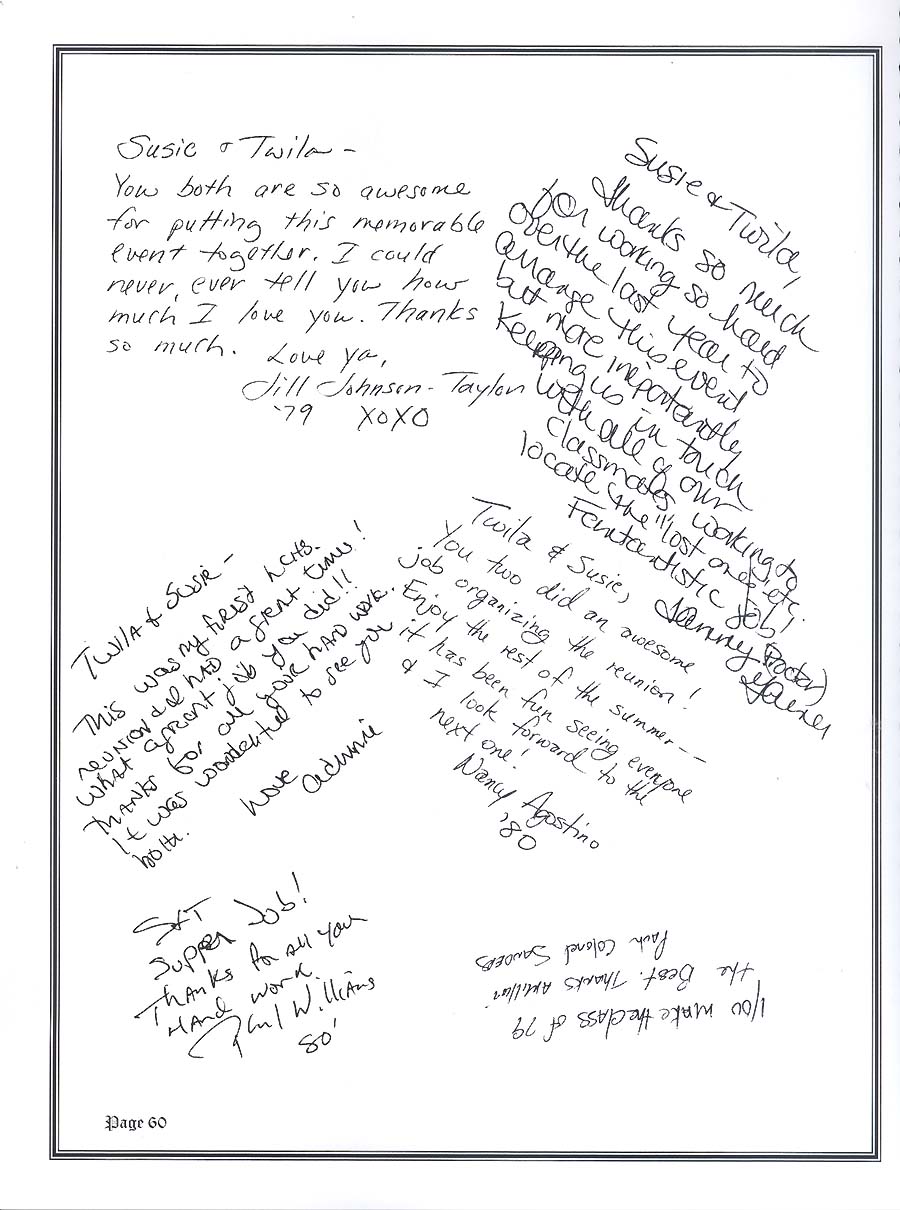 Susie & Twila –
You both are so awesome
for putting this memorable
event together. I could
never, ever tell you how
much I love you. Thanks
so much.
Love ya,
Jill Johnson-Taylor
'79 XOXO
Susie & Twila,
Thanks so much
for working so hard
over the last year to
arrange this event
but more importantly
Keeping us in touch
with all of our
classmates, working to
locate the "lost ones" etc.
Fantantistic Job!
(Proctor)
Twila & Susie,
You two did an awesome
job organizing the reunion!
Enjoy the rest of the summer –
it has been fun seeing everyone
& I look forward to the
next one!
Nancy Agostino
'80
Twila & Susie –
This was my first LCHS
reunion & I had a great time!
What a great job you did!!
Thanks for all your hard work.
It was wonderful to see you
both.
Love
S & T
Supper Job!
Thanks for all you
Hard work.
Paul Williams
80'
You make the class of 79
the Best. Thanks A million
Colonel Sanders
Page 60